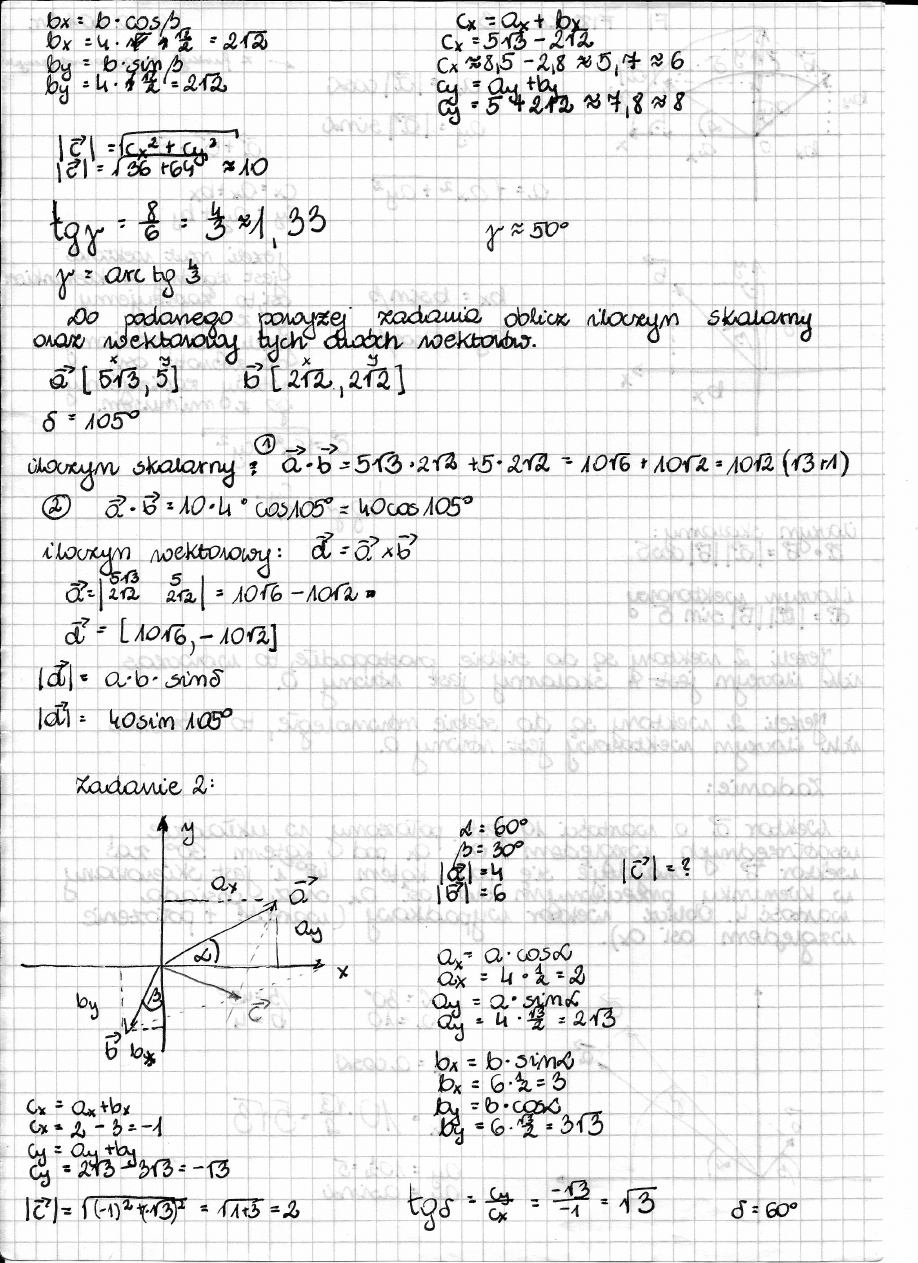 bx = b · cosβ
bx = 4 · √2/2 = 2√2
by = b · sinβ
by = 4 · √2/2 = 2√2
cx = ax + bx
cx = 5√3 - 2√2
cx ≈ 8,5 - 2,8 ≈ 5,7 ≈ 6
cy = ay + by
cy = 5 + 2√2 ≈ 7,8 ≈ 8
|c⃗| = √cx² + cy²
|c⃗| = √36 + 64 ≈ 10
tgγ = 8/6 = 4/3 ≈ 1,33
γ ≈ 50°
γ = arc tg 4/3
Do podanego powyżej zadania oblicz iloczyn skalarny
oraz wektorowy tych dwóch wektorów.
x y x y
a⃗ [5√3, 5] b⃗ [2√2, 2√2]
δ = 105°
iloczyn skalarny: ① a⃗ · b⃗ = 5√3 · 2√2 + 5 · 2√2 = 10√6 + 10√2 = 10√2 (√3+1)
② a⃗ · b⃗ = 10 · 4 · cos105° = 40cos105°
iloczyn wektorowy: d⃗ = a⃗ × b⃗
d⃗ = |5√3 5
2√2 2√2| = 10√6 - 10√2
d⃗ = [10√6, -10√2]
|d⃗| = a·b· sinδ
|d⃗| = 40sin 105°
Zadanie 2:
y
ax
a⃗
ay
α
x
by
β
c⃗
b⃗
bx
α = 60°
β = 30°
|a⃗| = 4
|b⃗| = 6
|c⃗| = ?
ax = a · cosα
ax = 4 · 1/2 = 2
ay = a · sinα
ay = 4 · √3/2 = 2√3
bx = b · sinα
bx = 6 · 1/2 = 3
by = b · cosα
by = 6 · √3/2 = 3√3
cx = ax + bx
cx = 2 - 3 = -1
cy = ay + by
cy = 2√3 - 3√3 = -√3
|c⃗| = √(-1)² + (-√3)² = √1+3 = 2
tgδ = cy/cx = -√3/-1 = √3
δ = 60°